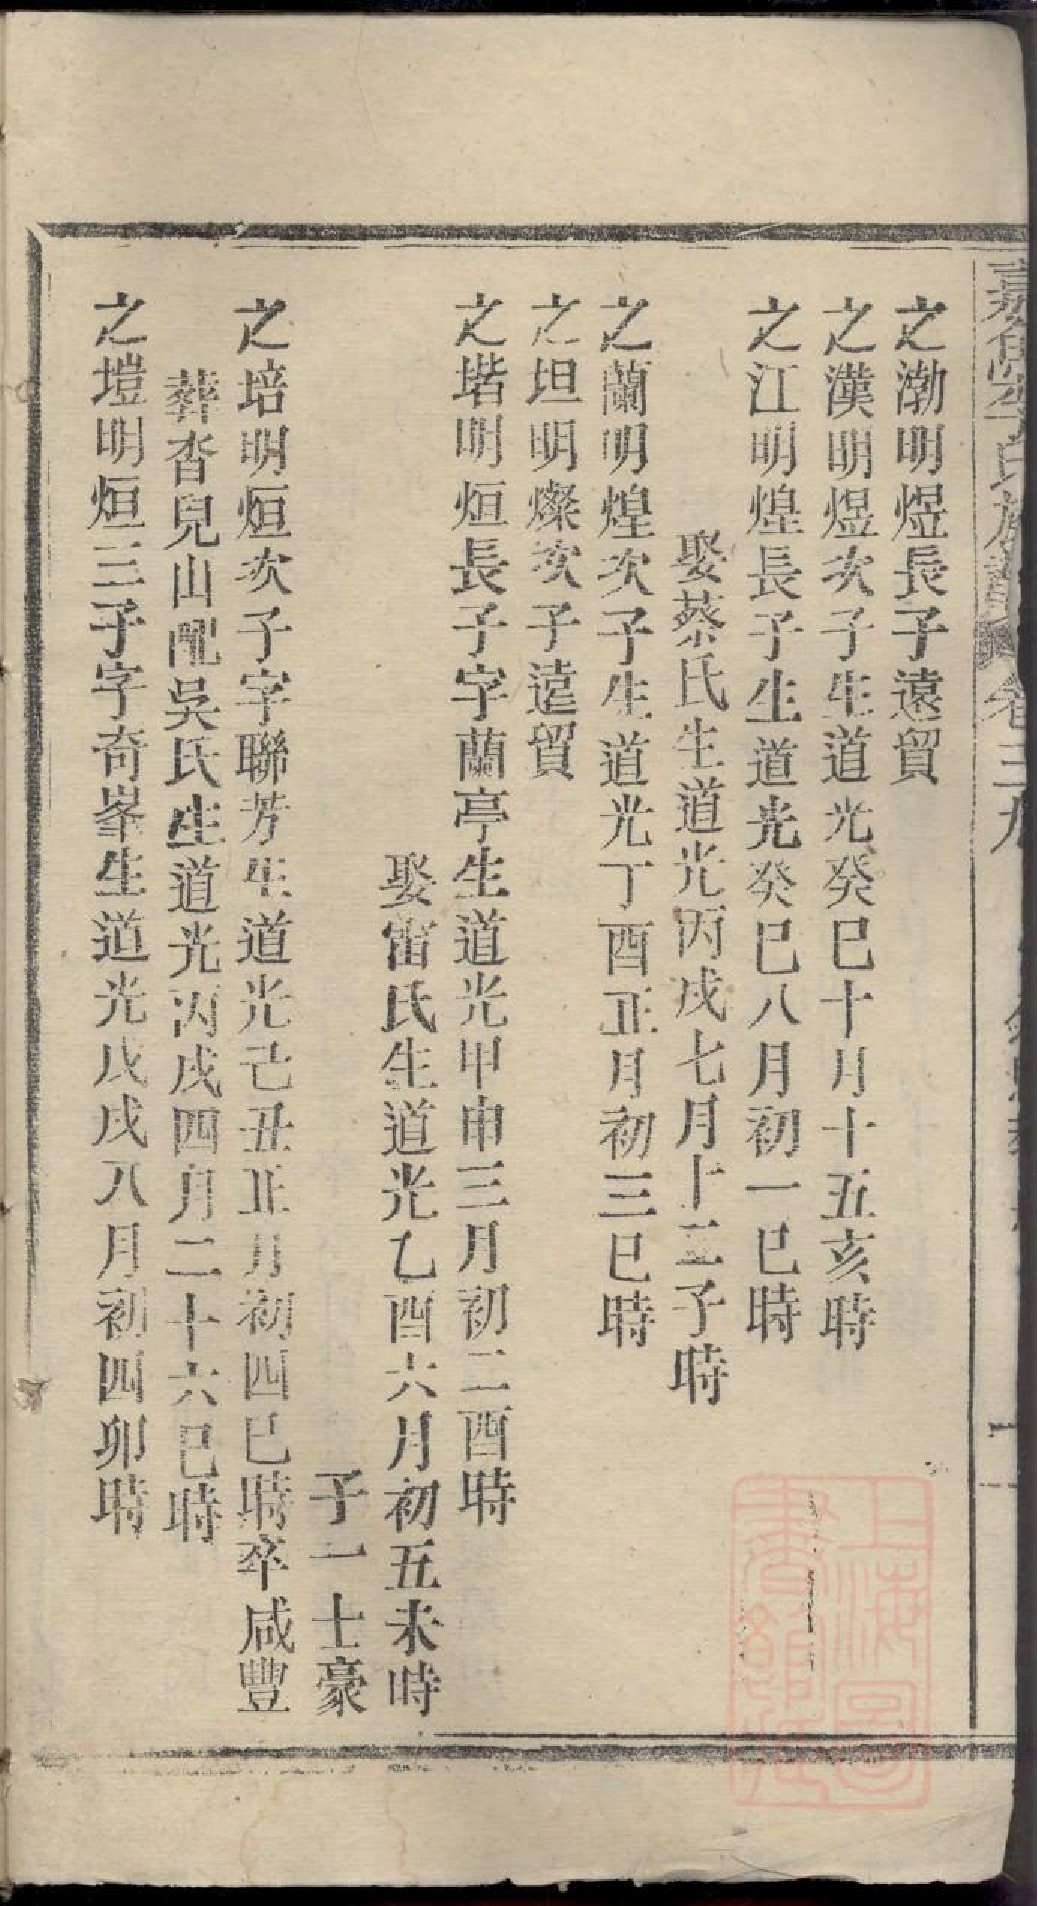 之渤明煜長子遠貿
之漢明煜次子生道光癸巳十月十五亥時
之江明煌長子生道光癸巳八月初一巳時
娶蔡氏生道光丙戌七月十二子時
之蘭明煌次子生道光丁酉正月初三巳時
之坦明燦次子遠貿
之堦明烜長子字蘭亭生道光甲申三月初二酉時
娶雷氏生道光乙酉六月初五未時
子一士豪
之培明烜次子字聯芳生道光己丑正月初四巳時卒咸豐
葬沓兒山配吳氏生道光丙戌四月二十六巳時
之塏明烜三子字奇峯生道光戊戌八月初四卯時
上海圖書館藏